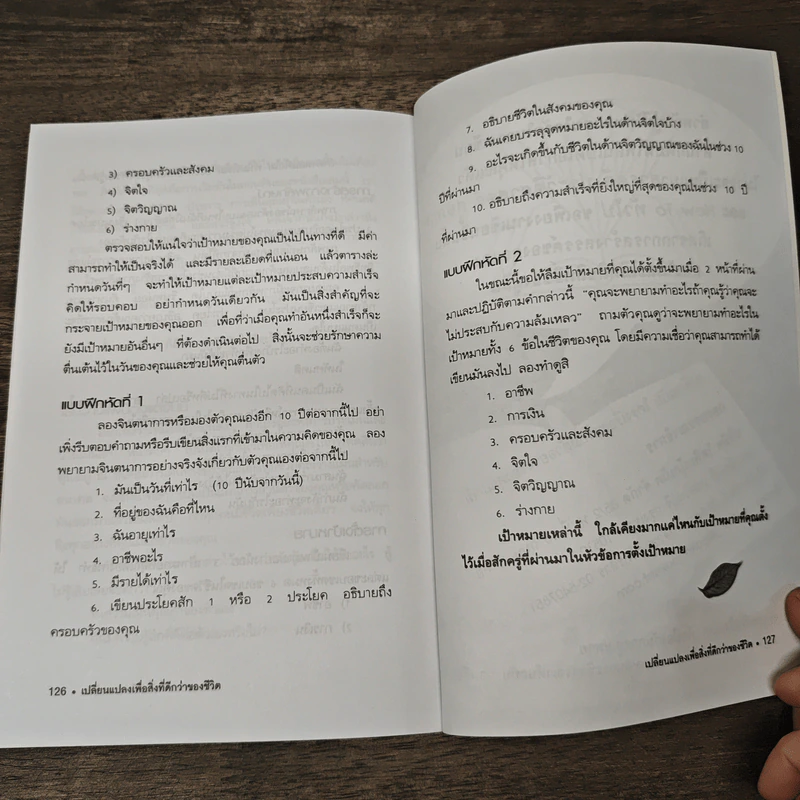 3) ครอบครัวและสังคม
4) จิตใจ
5) จิตวิญญาณ
6) ร่างกาย
ตรวจสอบให้แน่ใจว่าเป้าหมายของคุณเป็นไปในทางที่ดี มีค่า
สามารถทำให้เป็นจริงได้ และมีรายละเอียดที่แน่นอน แล้วตารางล่ะ
กำหนดวันที่ๆ จะทำให้เป้าหมายแต่ละเป้าหมายประสบความสำเร็จ
คิดให้รอบคอบ อย่ากำหนดวันเดียวกัน มันเป็นสิ่งสำคัญที่จะ
กระจายเป้าหมายของคุณออก เพื่อที่ว่าเมื่อคุณทำอันหนึ่งสำเร็จก็จะ
ยังมีเป้าหมายอันอื่นๆ ที่ต้องดำเนินต่อไป สิ่งนั้นจะช่วยรักษาความ
ตื่นเต้นไว้ในวันของคุณและช่วยให้คุณตื่นตัว
แบบฝึกหัดที่ 1
ลองจินตนาการหรือมองตัวคุณเองอีก 10 ปีต่อจากนี้ไป อย่า
เพิ่งรีบตอบคำถามหรือรีบเขียนสิ่งแรกที่เข้ามาในความคิดของคุณ ลอง
พยายามจินตนาการอย่างจริงจังเกี่ยวกับตัวคุณเองต่อจากนี้ไป
1. มันเป็นวันที่เท่าไร (10 ปีนับจากวันนี้)
2. ที่อยู่ของฉันคือที่ไหน
3. ฉันอายุเท่าไร
4. อาชีพอะไร
5. มีรายได้เท่าไร
6. เขียนประโยคสัก 1 หรือ 2 ประโยค อธิบายถึง
ครอบครัวของคุณ
126 • เปลี่ยนแปลงเพื่อสิ่งที่ดีกว่าของชีวิต
7. อธิบายชีวิตในสังคมของคุณ
8. ฉันเคยบรรลุจุดหมายอะไรในด้านจิตใจบ้าง
9. อะไรจะเกิดขึ้นกับชีวิตในด้านจิตวิญญาณของฉันในช่วง 10
ปีที่ผ่านมา
10. อธิบายถึงความสำเร็จที่ยิ่งใหญ่ที่สุดของคุณในช่วง 10 ปี
ที่ผ่านมา
แบบฝึกหัดที่ 2
ในขณะนี้ขอให้ลืมเป้าหมายที่คุณได้ตั้งขึ้นมาเมื่อ 2 หน้าที่ผ่าน
มาและปฏิบัติตามคำกล่าวนี้ "คุณจะพยายามทำอะไรถ้าคุณรู้ว่าคุณจะ
ไม่ประสบกับความล้มเหลว" ถามตัวคุณดูว่าจะพยายามทำอะไรใน
เป้าหมายทั้ง 6 ข้อในชีวิตของคุณ โดยมีความเชื่อว่าคุณสามารถทำได้
เขียนมันลงไป ลองทำดูสิ
1. อาชีพ
2. การเงิน
3. ครอบครัวและสังคม
4. จิตใจ
5. จิตวิญญาณ
6. ร่างกาย
เป้าหมายเหล่านี้ ใกล้เคียงมากแค่ไหนกับเป้าหมายที่คุณตั้ง
ไว้เมื่อสักครู่ที่ผ่านมาในหัวข้อการตั้งเป้าหมาย
เปลี่ยนแปลงเพื่อสิ่งที่ดีกว่าของชีวิต • 127